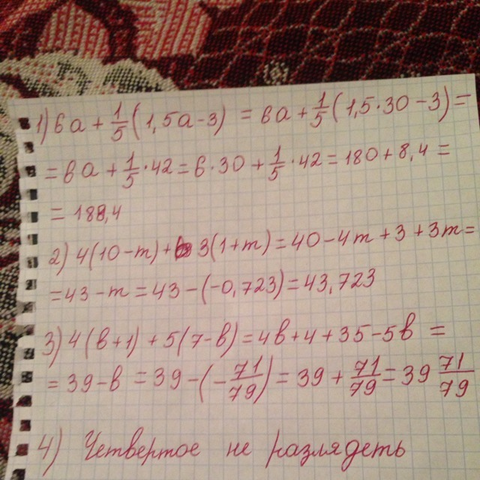 1) 6a + 1/5 (1,5a - 3) = 6a + 1/5 (1,5 · 30 - 3) =
= 6a + 1/5 · 42 = 6 · 30 + 1/5 · 42 = 180 + 8,4 =
= 188,4
2) 4(10 - m) + 3(1 + m) = 40 - 4m + 3 + 3m =
= 43 - m = 43 - (-0,723) = 43,723
3) 4(в+1) + 5(7-в) = 4в + 4 + 35 - 5в =
= 39 - в = 39 - (- 71/79) = 39 + 71/79 = 39 71/79
4) Четвертое не разлядеть